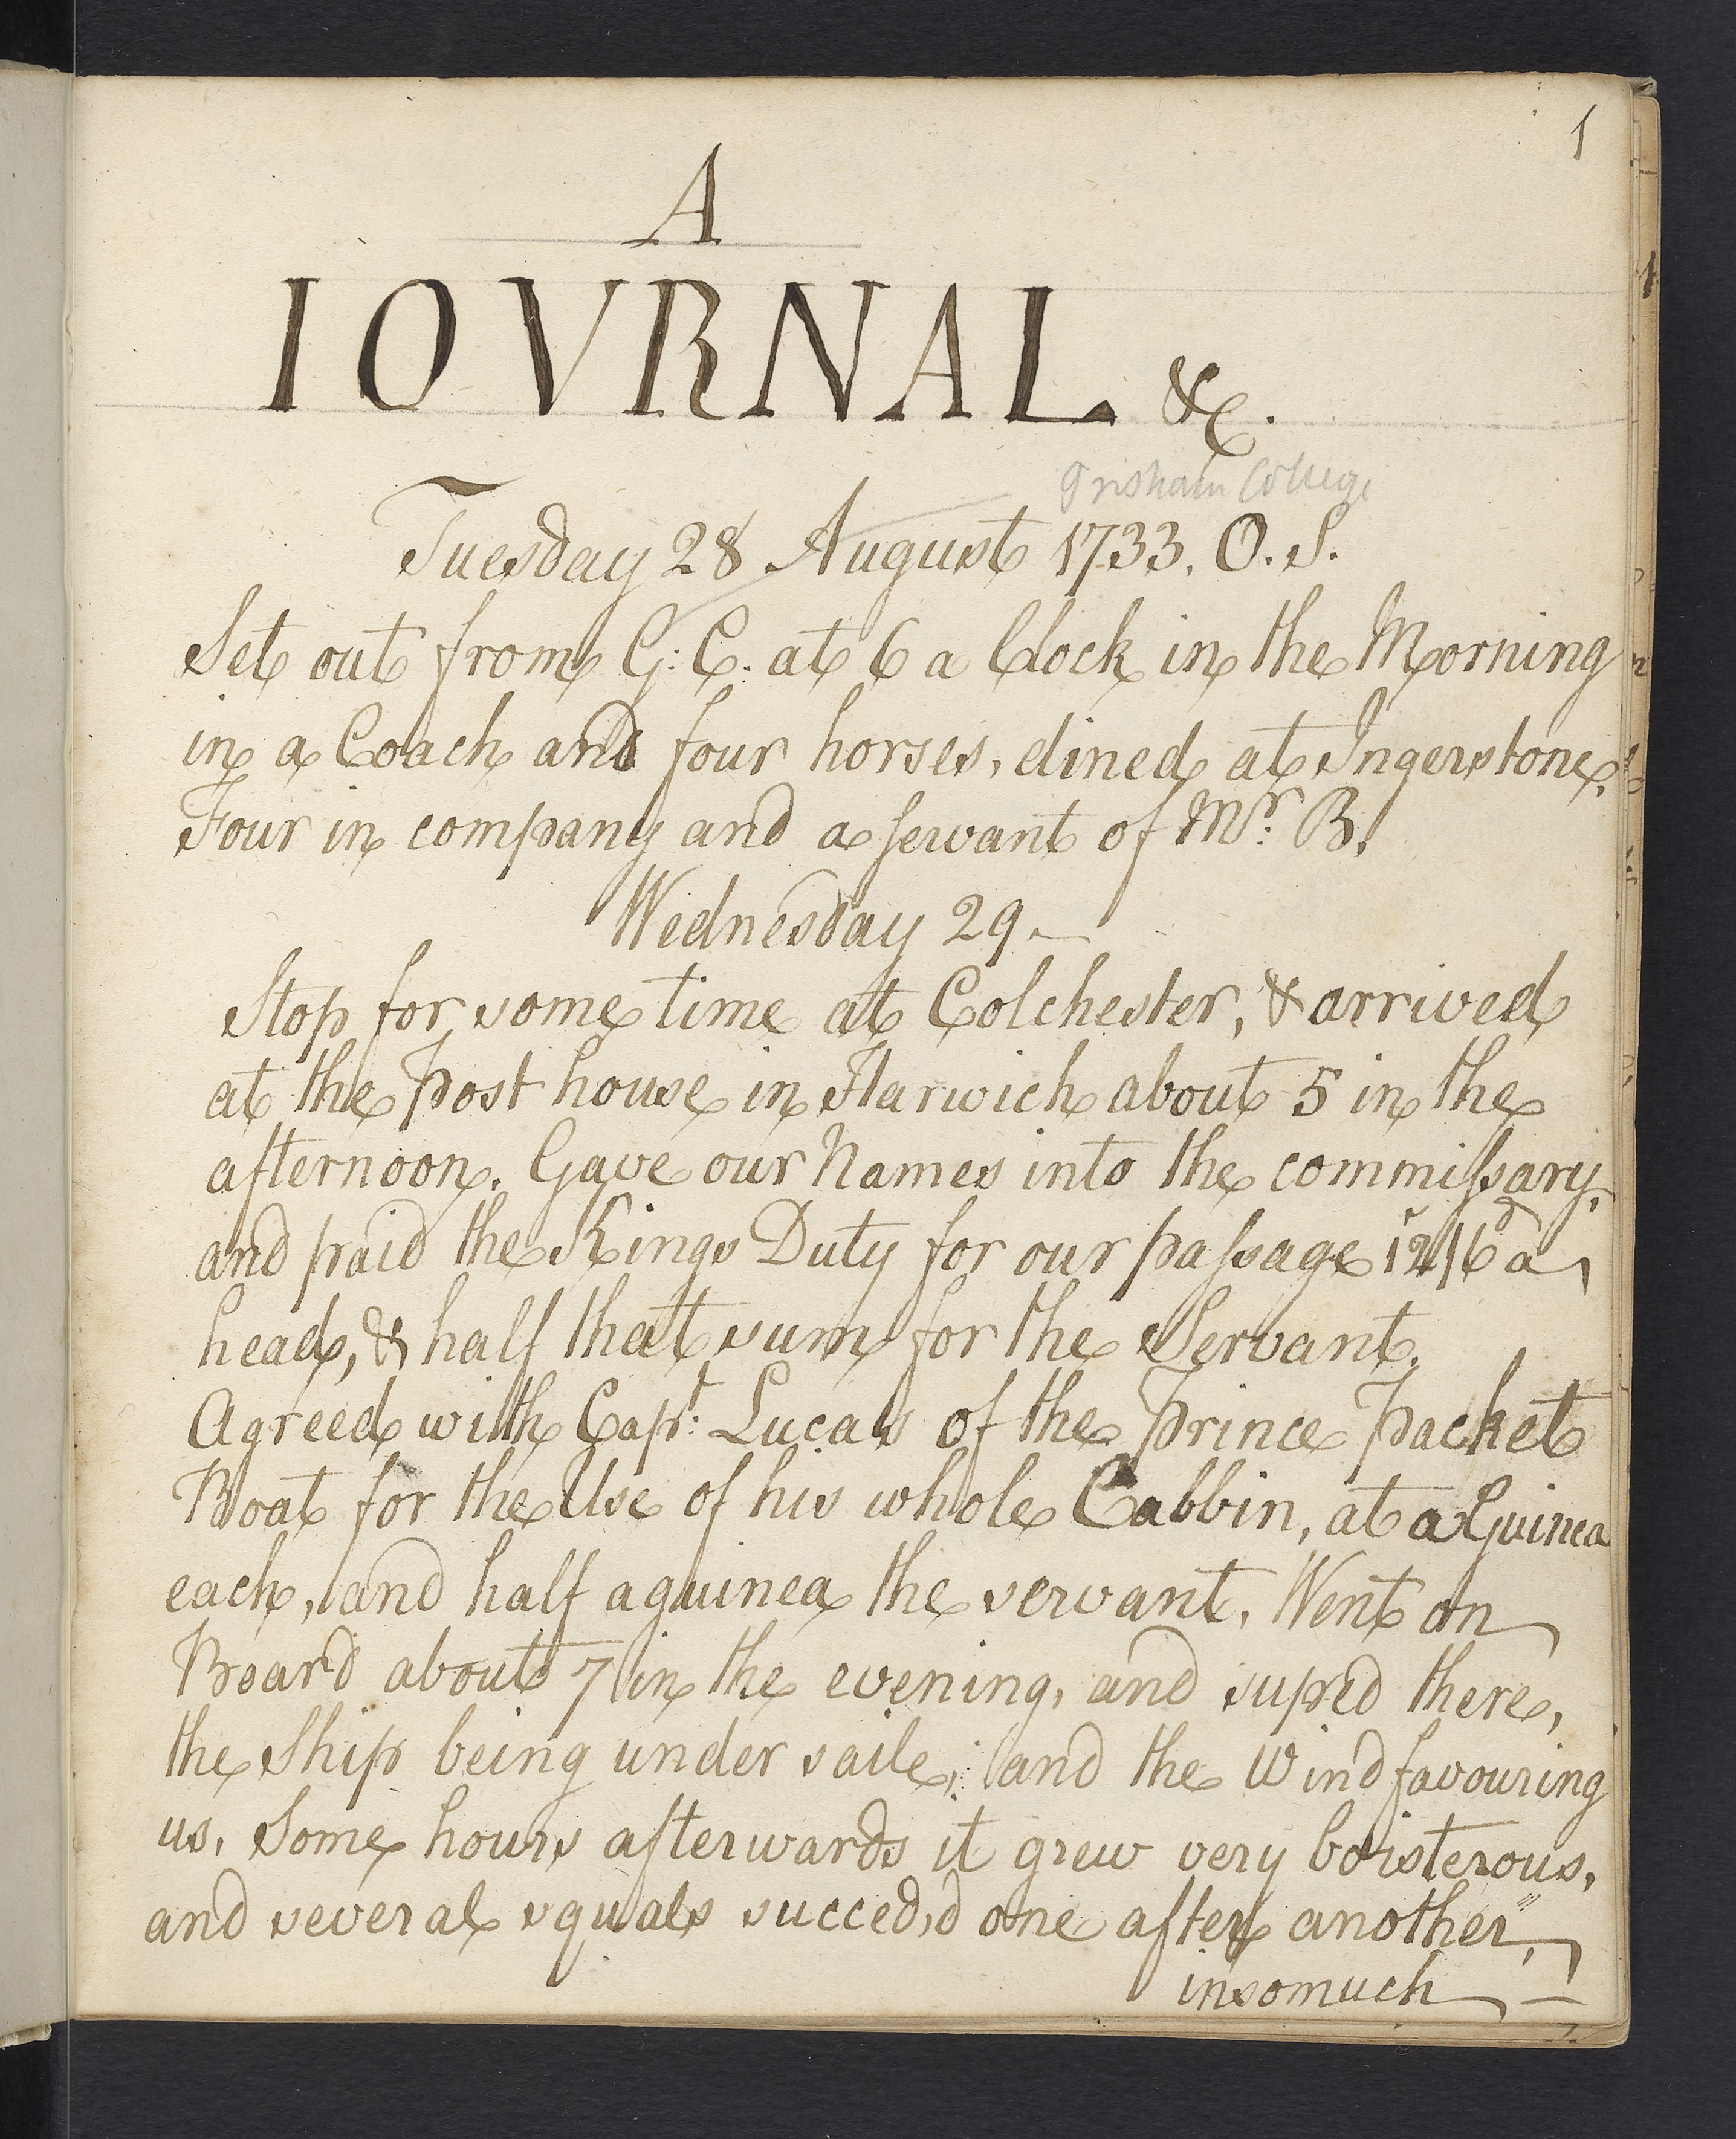 1
A
IOVRNAL &c.
Grisham College
Tuesday 28 August 1733. O. S.
Set out from G: C. at 6 a Clock in the Morning
in a Coach and four horses, dined at Ingerstone.
Four in company and a servant of Mr: B.
Wednesday 29
Stop for some time at Colchester, & arrived
at the Post house in Harwich about 5 in the
afternoon. Gave our Names into the commissary,
and paid the Kings Duty for our passage 12s/6d a
head, & half that sum for the Servant.
Agreed with Capt: Lucas of the Prince Packet
Boat for the Use of his whole Cabbin, at a Guinea
each, and half a guinea the servant. Went on
Board about 7 in the evening, and suped there,
the Ship being under saile, and the Wind favouring
us. Some hours afterwards it grew very boisterous,
and several squals succed,d one after another,
insomuch